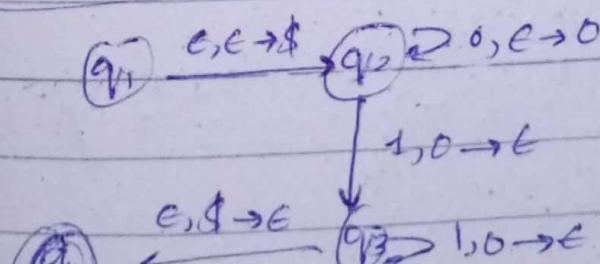 q1 ε, ε → $ q2 0, ε → 0
1, 0 → ε
ε, $ → ε q3 1, 0 → ε